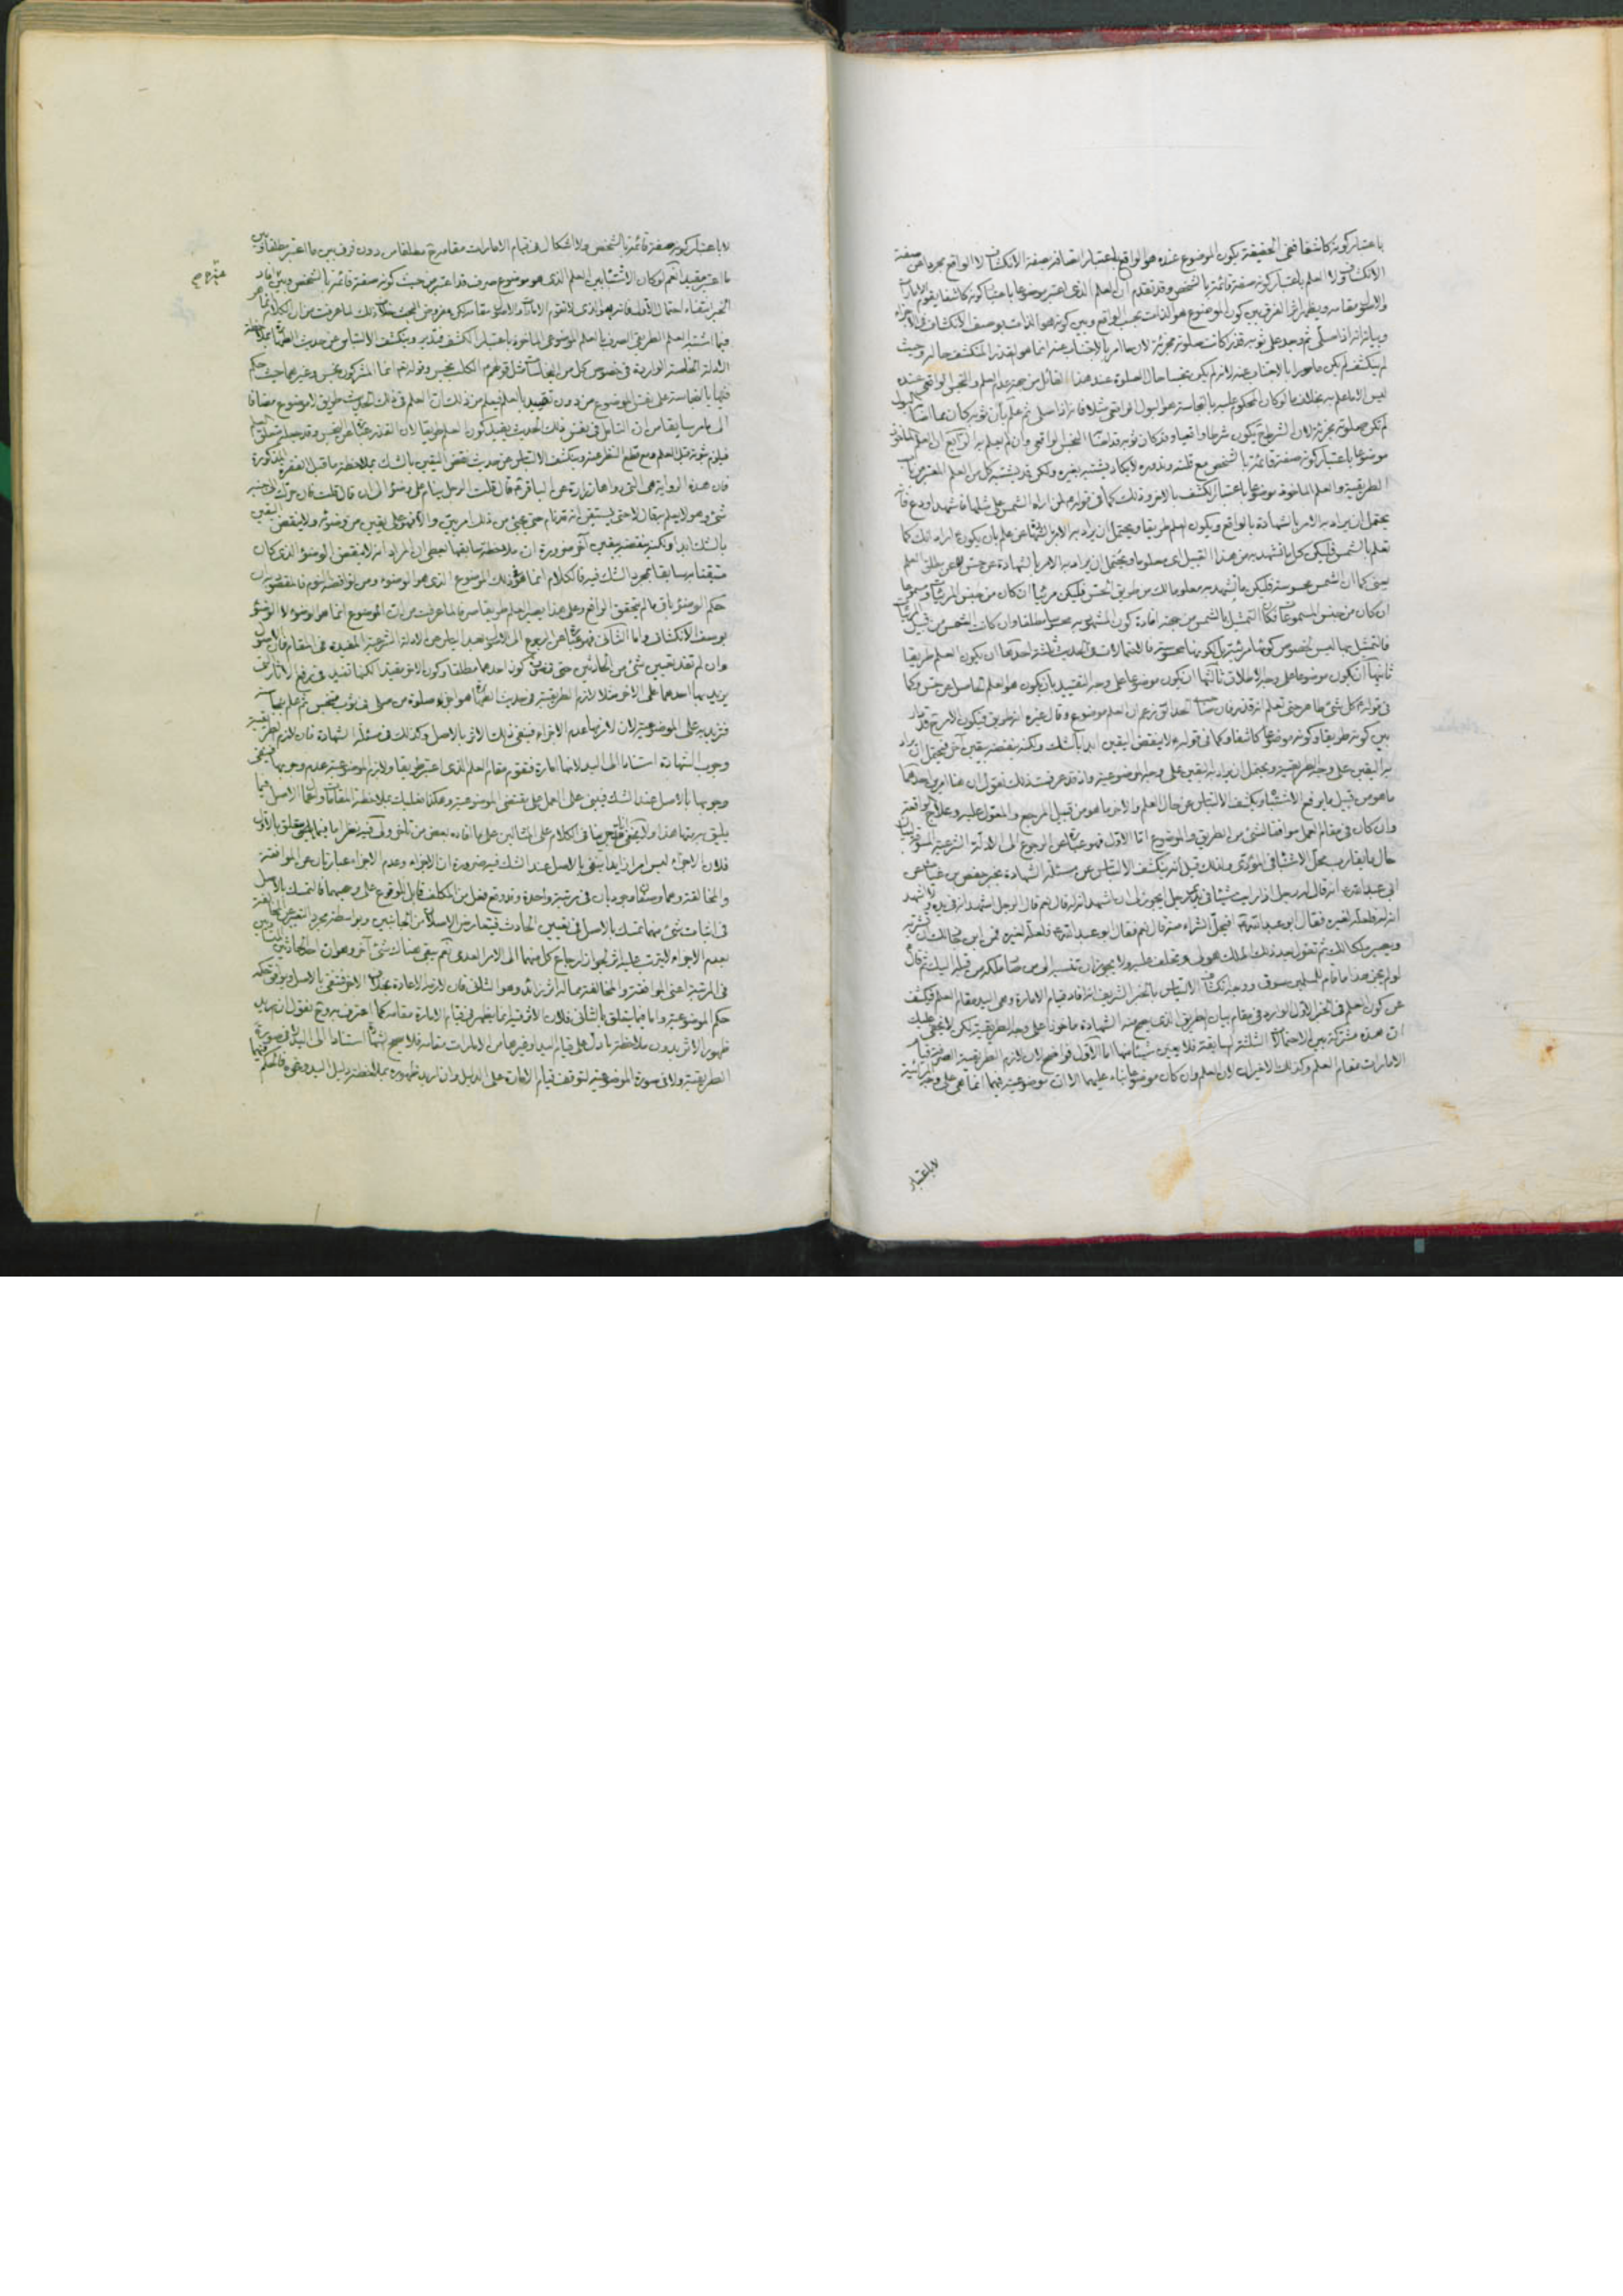 باعتبار كونه كاشفا ففى الحقيقة يكون الموضوع عنده هو الواقع باعتبار اتصافه بصفة الانكشاف لا الواقع مجردا عن صفة
الانكشاف ولا العلم باعتبار كونه صفة قائمة بالشخص وقد تقدم ان العلم الذى اعتبر موضوعا باعتبار كونه كاشفا يقوم الامارات
والاصول مقامه ويظهر اثر الفرق بين كون الموضوع هو الذات بحسب الواقع وبين كونه هو الذات بوصف الانكشاف فى الاجزاء
وبيانه انه اذا صلى ثم وجد على ثوبه قذرا كانت صلوته مجزئة لان ما امر بالاجتناب عنه انما هو القذر المنكشف حاله وحيث
لم ينكشف لم يكن مامورا بالاجتناب عنه لانه لم يكن نجسا حال الصلوة عند هذا القائل من جهة عدم العلم والنجس الواقعى عنده
ليس الا ما علم به بخلاف ما لو كان المحكوم عليه بالنجاسة هو البول الواقعى مثلا فانه اذا صلى ثم علم بأن ثوبه كان مما اصابه البول
لم تكن صلوته مجزئة لان الشرط ح يكون شرطا واقعيا وقد كان ثوبه قد اصابه النجس الواقعى وان لم يعلم به الرابع ان العلم الماخوذ
موضوعا باعتبار كونه صفة قائمة بالشخص مع قلته وندوره لا يكاد يشتبه بغيره ولكن قد يشتبه كل من العلم المعتبر من باب
الطريقية والعلم الماخوذ موضوعا باعتبار الكشف بالاخر وذلك كما فى قوله ع لمن اراه الشمس على مثلها فاشهد او دع فانه
يحتمل ان يراد به الامر بالشهادة بالواقع ويكون العلم طريقا ويحتمل ان يراد به الامر بالشهادة عن علم بان يكون المراد انك كما
تعلم بالشمس فليكن كل ما تشهد به من هذا القبيل اى معلوما ويحتمل ان يراد به الامر بالشهادة عن حس لا عن مطلق العلم
يعنى كما ان الشمس محسوسة فليكن ما تشهد به معلوما لك من طريق الحس فليكن مرئيا ان كان من جنس المرئيات ومسموعا
ان كان من جنس المسموعات فكان التمثيل بالشمس من جهة افادة كون المشهود به محسوسا مطلقا وان كانت الشمس من قبيل المرئيات
فالتمثيل بها ليس لخصوص كونها مرئية بل لكونها محسوسة فالاحتمالات فى الحديث ثلثة احدها ان يكون العلم طريقا
ثانيها ان يكون موضوعا على وجه الاطلاق ثالثها ان يكون موضوعا على وجه التقييد بان يكون هو العلم الحاصل عن حس وكما
فى قوله ع كل شئ طاهر حتى تعلم انه قذر فان صاحب الحدائق زعم ان العلم موضوع وقال غيره انه طريق فيكون الامر ح قد دار
بين كونه طريقا وكونه موضوعا كاشفا وكما فى قوله ع لا ينقض اليقين ابدا بالشك ولكنه ينقضه بيقين آخر فيحتمل ان يراد
به اليقين على وجه الطريقية ويحتمل ان يراد به اليقين على وجه الموضوعية واذ قد عرفت ذلك نقول ان هنا امرين احدهما
ما هو من قبيل ما يرفع الاشتباه ويكشف الالتباس عن حال العلم والاخر ما هو من قبيل المرجع والمعول عليه وعلاج الواقعة
وان كان فى مقام العمل موافقا لشئ من الطريق والموضوع اما الاول فهو عبارة عن الرجوع الى الادلة الشرعية المسوقة لبيان
حال ما يقارب محل الاشتباه فى المؤدى ولذلك قيل انه ينكشف الالتباس عن مسئلة الشهادة بخبر حفص بن غياث عن
ابى عبد الله ع انه قال له رجل اذا رايت شيئا فى يدى رجل يجوز لى ان اشهد انه له قال نعم قال الرجل اشهد انه فى يده ولا اشهد
انه له فلعله لغيره فقال ابو عبد الله ع افيحل الشراء منه قال نعم فقال ابو عبد الله ع فلعله لغيره فمن اين جاز لك ان تشتريه
ويصير ملكا لك ثم تقول بعد ذلك الملك هو لى وتحلف عليه ولا يجوز ان تنسبه الى من صار ملكه من قبله اليك ثم قال ع
لو لم يجز هذا ما قام للمسلمين سوق ووجه انكشاف الالتباس بالخبر الشريف انه افاد قيام الامارة وهى اليد مقام العلم فيكشف
عن كون العلم فى الخبر الاول الوارد فى مقام بيان الطريق الذى يصح منه الشهادة ماخوذا على وجه الطريقية لكن لا يخفى عليك
ان هذه مشتركة بين الاحتمالات الثلثة السابقة فلا يعين شيئا منها اما الاول فواضح لان لازم الطريقية الصرفة قيام
الامارات مقام العلم وكذلك الاخيران لان العلم وان كان موضوعا بناء عليهما الا ان موضوعيته فيهما انما هى على وجه المرآتية
لا باعتبار
لا باعتبار كونه صفة قائمة بالشخص ولا اشكال فى قيام الامارات مقامه ح مطلقا من دون فرق بين ما اعتبر مطلقا وبين
ما اعتبر مقيدا نعم لو كان الاشتباه بين العلم الذى هو موضوع صرف قد اعتبر من حيث كونه صفة قائمة بالشخص وبين غيره افاد
الخبر انتفاء احتمال الاول فانه هو الذى لا تقوم الامارات والاصول مقامه لكن مفروض البحث خلاف ذلك لما عرفت من ان الكلام انما هو
فيما اشتبه العلم الطريقى الصرف بالعلم الموضوعى الماخوذ باعتبار الكشف فتدبر وينكشف الالتباس عن حديث الطهارة بملاحظة
الادلة الخاصة الواردة فى خصوص كل من النجاسات مثل قولهم ع الكلب نجس وقوله تع انما المشركون نجس وغيرهما حيث حكم
فيها بالنجاسة على نفس الموضوع من دون تقييد بالعلم فيعلم من ذلك ان العلم فى ذلك الحديث طريق لا موضوع مضافا
الى ما مر سابقا من ان التامل فى نفس ذلك الحديث يفيد كون العلم طريقا لان القذر عبارة عن النجس وقد جعله متعلق العلم
فيلزم ثبوته قبل العلم ومع قطع النظر عنه وينكشف الالتباس عن حديث نقض اليقين بالشك بملاحظة ما قبل الفقرة المذكورة
فان هذه الرواية هى التى رواها زرارة عن الباقر ع قال قلت الرجل ينام على وضوء الى ان قال قلت فان حرك الى جنبه
شئ وهو لا يعلم به قال لا حتى يستيقن انه قد نام حتى يجئ من ذلك امر بين والا فهو على يقين من وضوئه ولا ينقض اليقين
بالشك ابدا ولكنه ينقضه بيقين آخر ضرورة ان ملاحظة سابقها تعطى ان المراد انه لا ينقض الوضوء الذى كان
متيقنا به سابقا بمجرد الشك فيه فالكلام انما هو فى ذلك الموضوع الذى هو الوضوء ومن نواقضه النوم فالمقصود بيان
حكم الوضوء بانه ما لم يتحقق الواقع وعلى هذا يصير العلم طريقا صرفا لما عرفت من ان الموضوع انما هو الوضوء لا الوضوء
بوصف الانكشاف واما الثانى فهو عبارة عن الرجوع الى الاصول بعد الياس عن الادلة الشرعية المفيدة فى المقام فان الاصول
وان لم تفد تعيين شئ من الحادثين حتى فى صورة كون احدهما مطلقا وكون الاخر مقيدا لكنها تفيد فى رفع الاثار التى
يزيد بها احدهما على الاخر مثلا لازم الطريقية فى حديث الطهارة هو اجزاء صلوة من صلى فى ثوب متنجس ثم علم بنجاسته
فتزيد به على الموضوعية لان لازمها عدم الاجزاء فينفى ذلك الاثر بالاصل وكذلك فى مسئلة الشهادة فان لازم الطريقية
وجوب الشهادة استنادا الى اليد لانها امارة فتقوم مقام العلم الذى اعتبر طريقا ولازم الموضوعية عدم وجوبها فينفى
وجوبها بالاصل عند الشك فيبقى على العمل على مقتضى الموضوعية وهكذا فعليك بملاحظة المقامات واعمال الاصل فيما
يليق به منها هذا ولا يخفى انا قد جرينا فى الكلام على المثالين على ما افاده بعض من تاخر ولى فيه نظر اما فيما يتعلق بالاول
فلان الاجزاء ليس امرا زايدا ينفى بالاصل عند الشك فيه ضرورة ان الاجزاء وعدم الاجزاء عبارتان عن الموافقة
والمخالفة وهما وصفان وجوديان فى مرتبة واحدة وقد وقع فعل من المكلف قابل لوقوع على وجهيهما فالتمسك بالاصل
فى اثبات شئ منهما تمسك بالاصل فى تعيين الحادث فيتعارض الاصلان من الجانبين وبواسطة مجرد التعبير عن المخالفة
بعدم الاجزاء لا يترتب عليه اثر لجواز ارجاع كل منهما الى الامر العدمى نعم يبقى هناك شئ آخر وهو ان احد الحادثين المتساويين
فى المرتبة اعنى الموافقة والمخالفة مما له اثر زائد وهو الثانى فان لازمه الاعادة بخلاف الاخر فتنفى بالاصل ويوافق حكمه
حكم الموضوعية واما فيما يتعلق بالثانى فلان الاثر فيه انما يظهر فى قيام الامارة مقامه كما اعترف به وح نقول ان اريد
ظهور الاثر بدون ملاحظة ما دل على قيام اليد او غيرها من الامارات مقامه فلا يصح الشهادة استنادا الى اليد لا فى صورة
الطريقية ولا فى صورة الموضوعية لتوقف قيام الامارة على الدليل وان اريد ظهوره بملاحظة دليل اليد ونحوه فالحكم فيهما